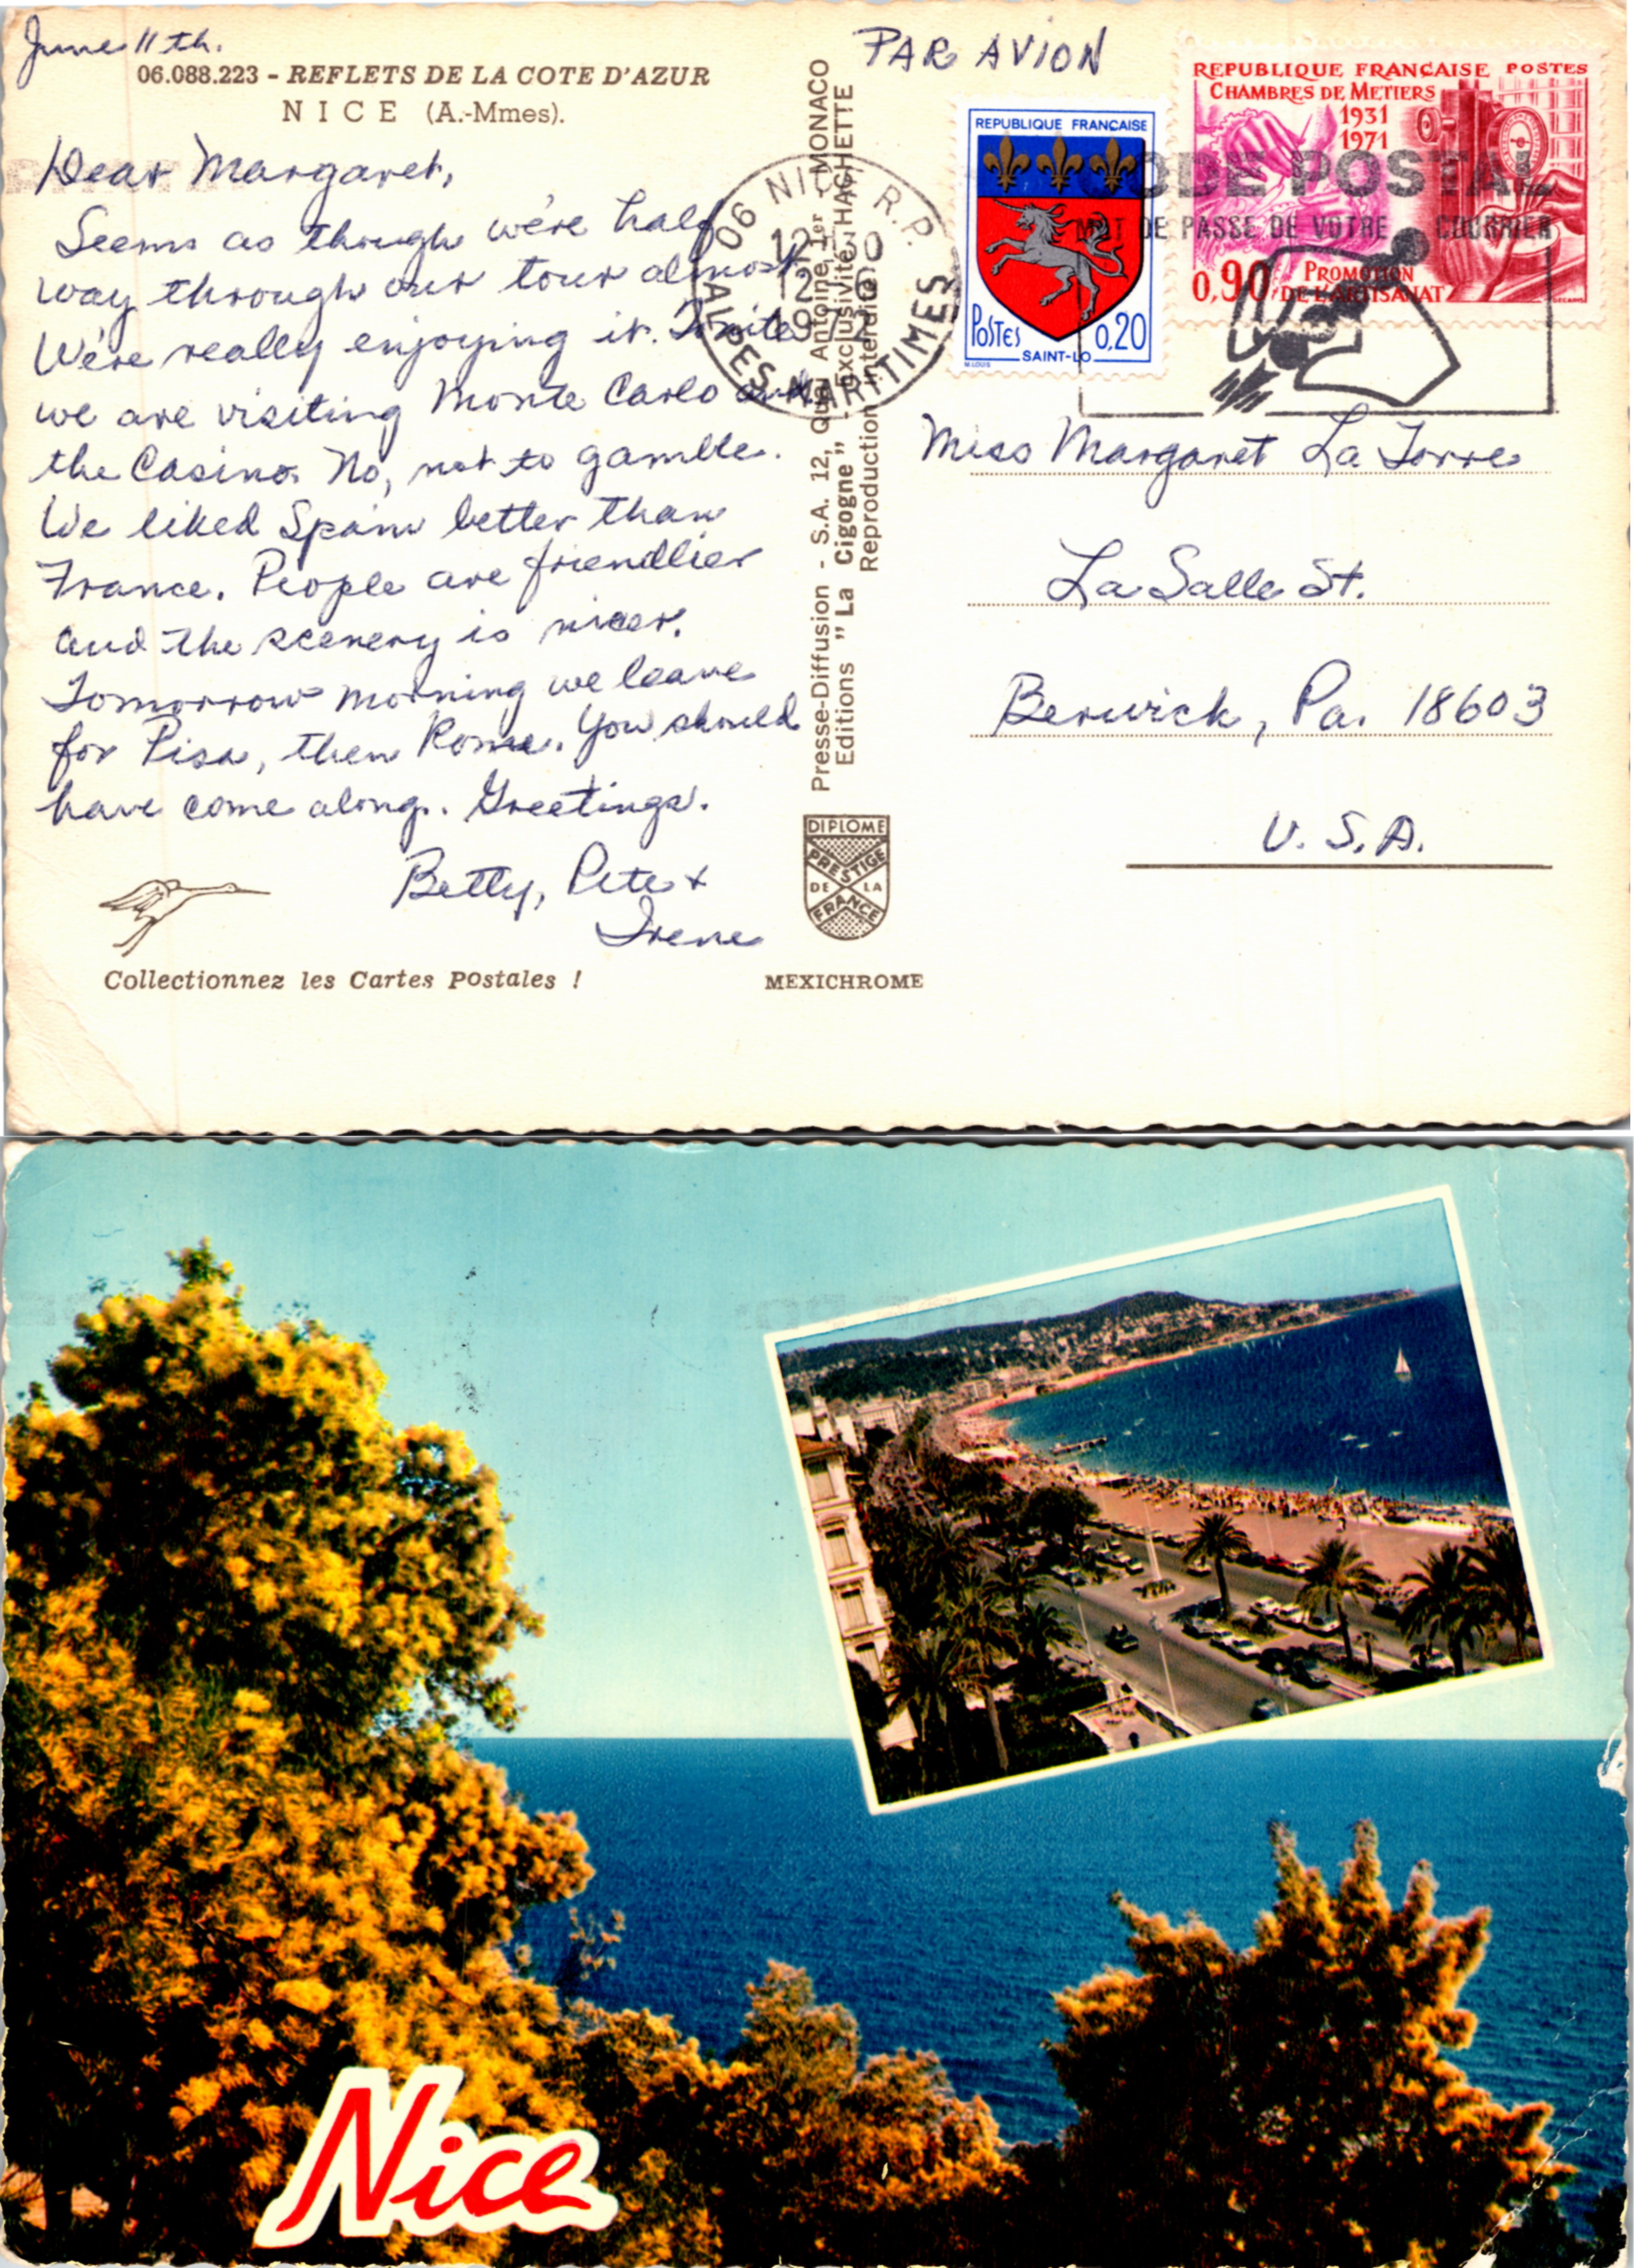 June 11th.
06.088.223 - REFLETS DE LA COTE D'AZUR
NICE (A.-Mmes).
Dear Margaret,
Seems as though we're half
way through our tour almost.
We're really enjoying it. Tonite
we are visiting Monte Carlo and
the Casino. No, not to gamble.
We liked Spain better than
France. People are friendlier
and the scenery is nicer.
Tomorrow morning we leave
for Pisa, then Rome. You should
have come along. Greetings.
Betty, Pete +
Irene
Collectionnez les Cartes Postales !
Presse-Diffusion - S.A. 12, Quai Antoine 1er - MONACO
Editions " La Cigogne " - Exclusivité HACHETTE
Reproduction Interdite
DIPLOME
PRESTIGE
DE LA
FRANCE
MEXICHROME
06 NICE R.P.
12
1972
ALPES-MARITIMES
PAR AVION
REPUBLIQUE FRANÇAISE
POSTES 0,20
SAINT-LO
M.LOUIS
REPUBLIQUE FRANÇAISE POSTES
CHAMBRES DE METIERS
1931
1971
0,90 PROMOTION
DE L'ARTISANAT
DECARIS
CODE POSTAL
MOT DE PASSE DE VOTRE COURRIER
Miss Margaret La Torre
La Salle St.
Berwick, Pa. 18603
U.S.A.
Nice